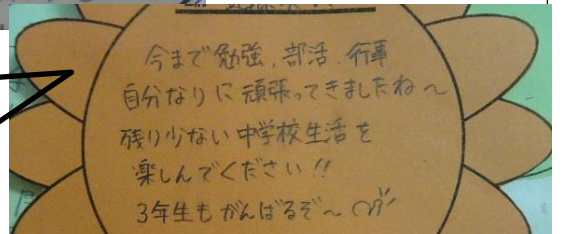 今まで勉強、部活、行事
自分なりに頑張ってきましたね〜
残り少ない中学校生活を
楽しんでください!!
3年生もがんばるぞ〜